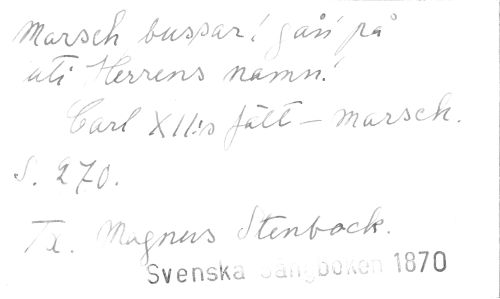 Marsch bussar! gån på
uti Herrens namn!
Carl XII:s fält-marsch.
S. 270.
Tx. Magnus Stenbock.
Svenska Sångboken 1870